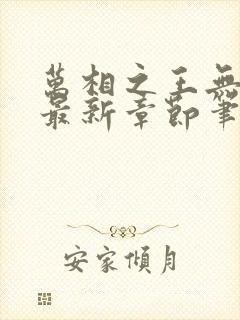 萬相之王無
最新章節筆
安家傾月